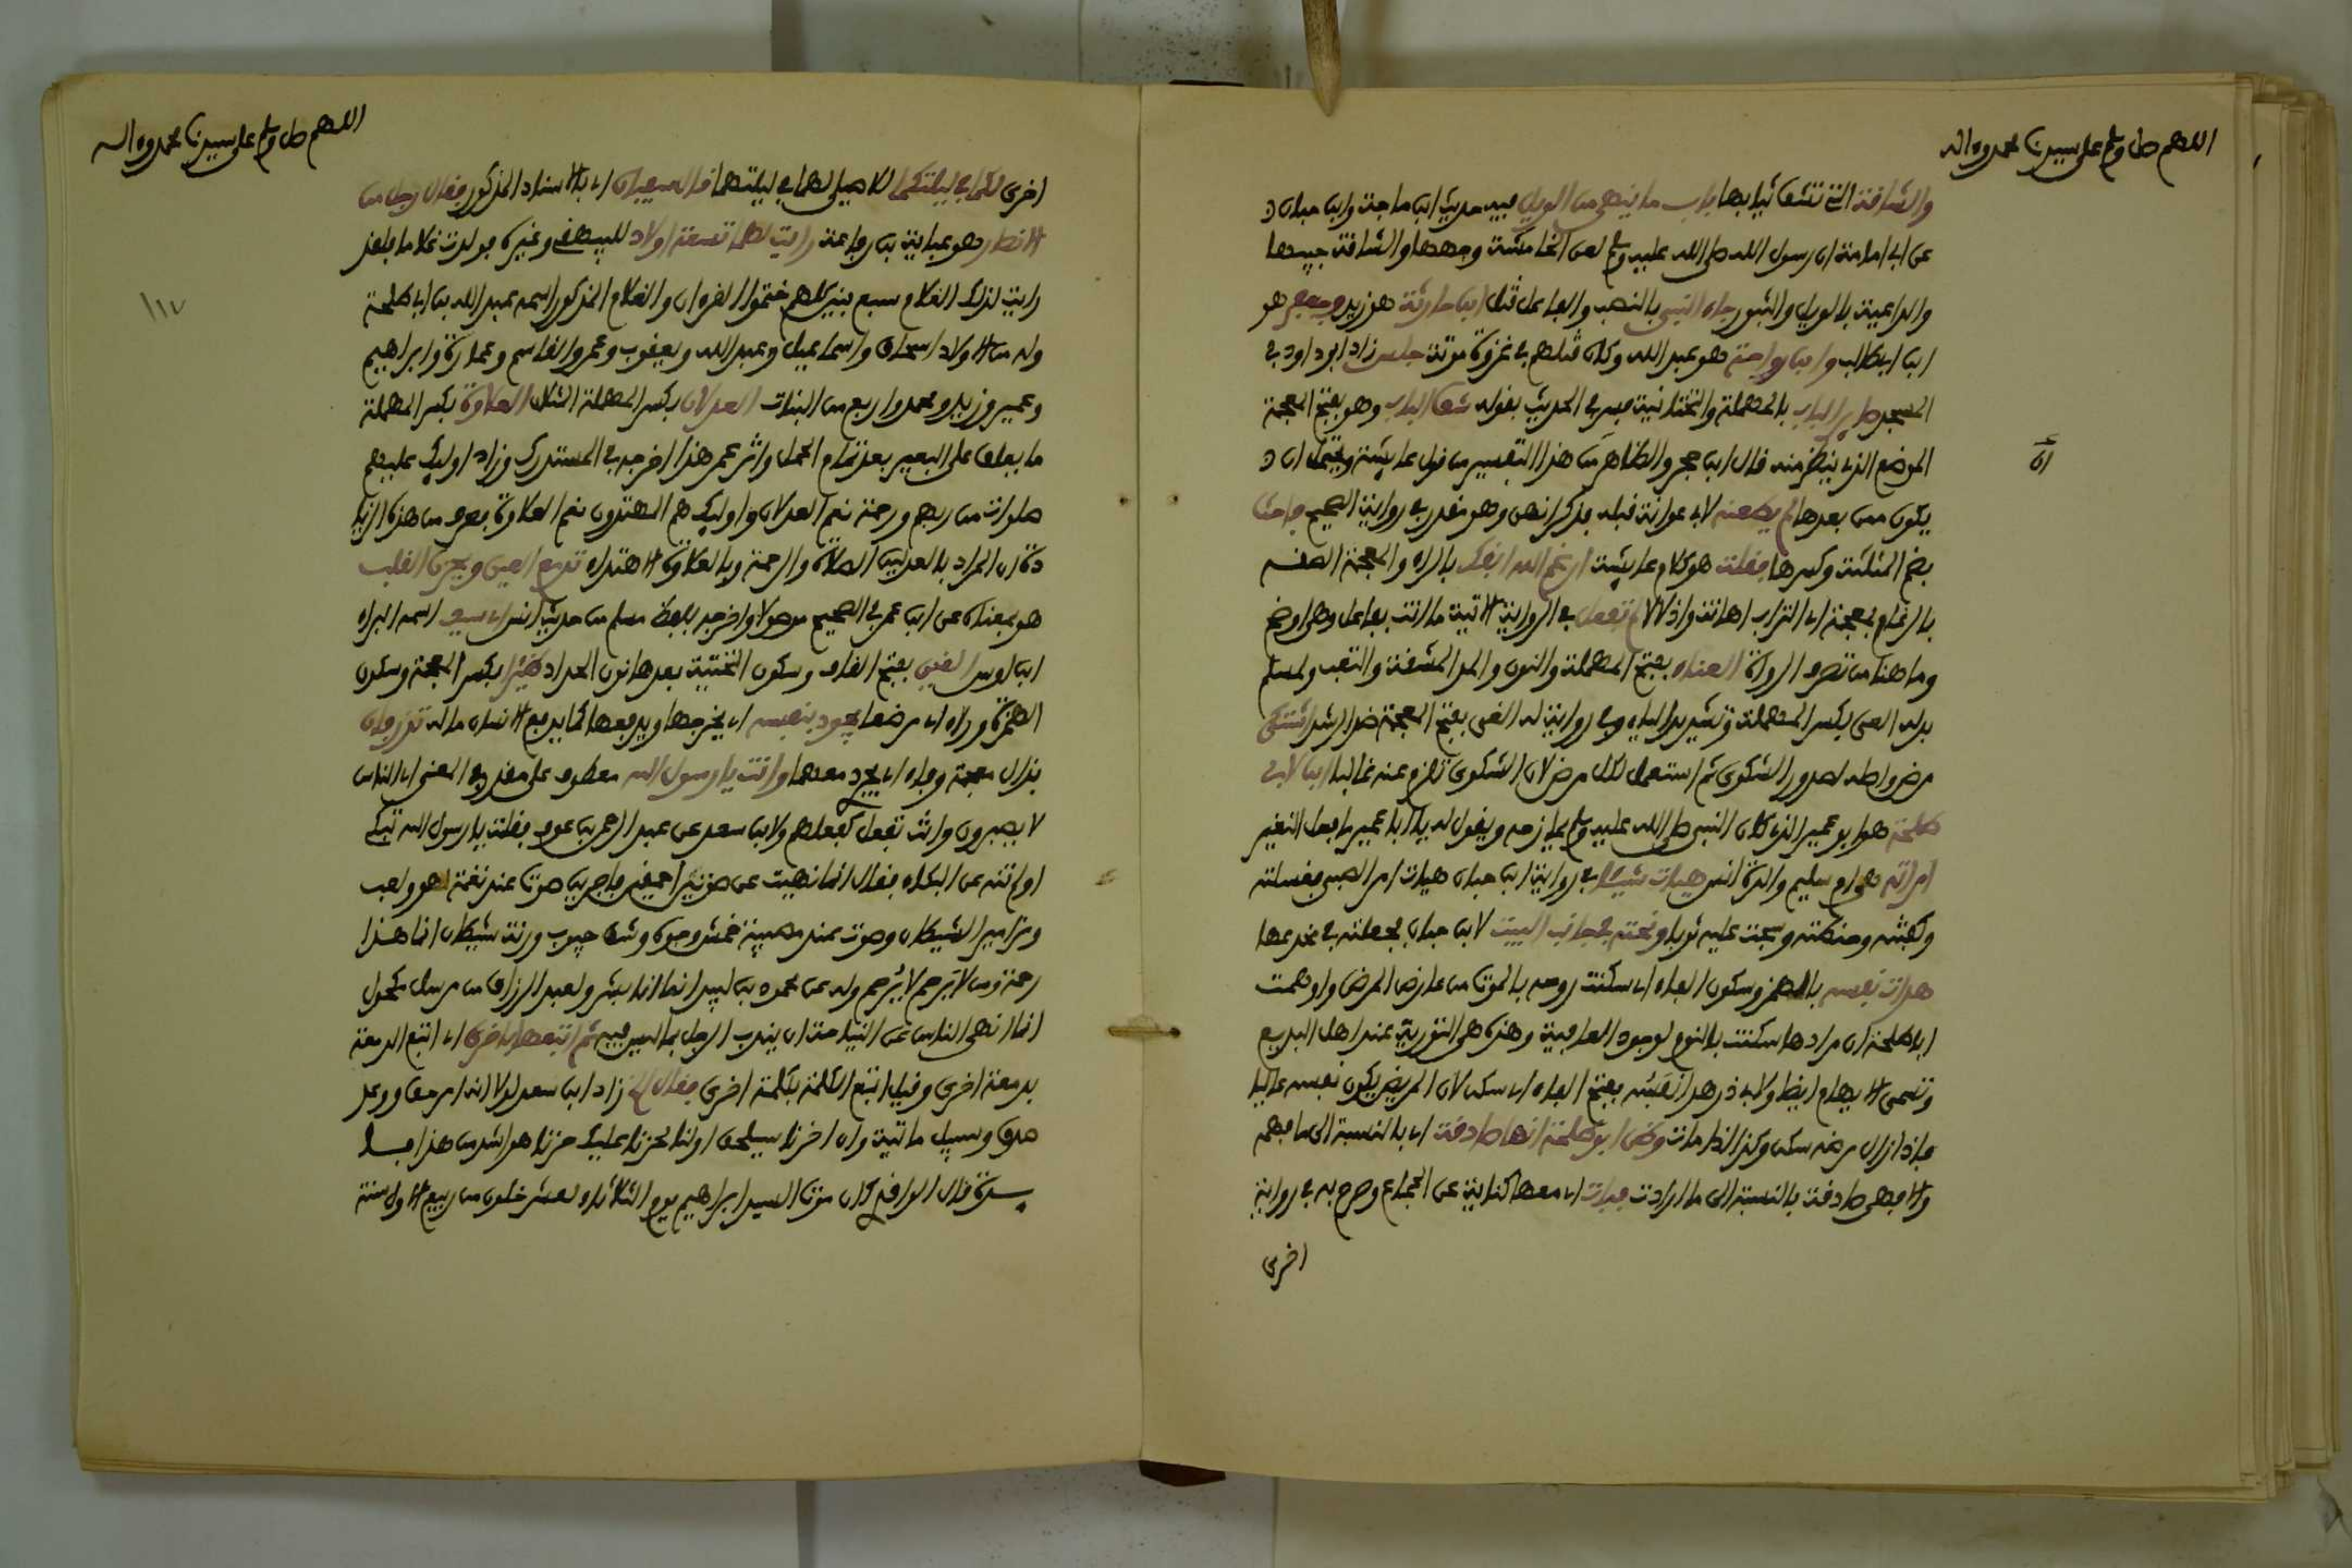 اللهم صل وسلم على سيدنا محمد وءاله
والشاقة التي تشق ثيابها باب ما ينهى من الويل فيه حديث ابن ماجة وابن حبان
عن ابي امامة ان رسول الله صلى الله عليه وسلم لعن الخامشة وجهها والشاقة جيبها
والداعية بالويل والثبور جاء النبي بالنصب والفاعل قتل ابن حارثة هو زيد وجعفر هو
ابن ابي طالب وابن رواحة هو عبد الله وكان قتلهم في غزوة موتة جلس زاد ابو داود في
المسجد صاير الباب بالمهملة والتحتانية فسر في الحديث بقوله شق الباب وهو بفتح المعجمة
الموضع الذي ينظر منه قال ابن حجر والظاهر ان هذا التفسير من قول عايشة ويحتمل ان
يكون ممن بعدها لم يطعنه لابي عوانة قبله فذكر انهن وهو مقدر في رواية الصحيح فاحث
بضم المثلثة وكسرها فقلت هو كلام عايشة ارغم الله انفك بالراء والمعجمة الصقه
بالرغام بمعجمة اي التراب اهانة واذلالا لم تفعل في الرواية الاتية ما انت بفاعل وهي اوضح
وما هنا من تصرف الرواة العناء بفتح المهملة والنون والمد المشقة والتعب ولمسلم
بدله العي بكسر المهملة وتشديد الياء وفي رواية له الغي بفتح المعجمة ضد الرشد اشتكى
مرض واصله صدور الشكوى ثم استعمل لكل مرض لان الشكوى تلزم عنه غالبا ابن لابي
طلحة هو ابو عمير الذي كان النبي صلى الله عليه وسلم يمازحه ويقول له يا ابا عمير ما فعل النغير
امراته هي ام سليم والدة انس هيات شيئا في رواية ابن حبان هيات امر الصبي فغسلته
وكفنته وحنطته وسجت عليه ثوبا ونحته في جانب البيت لابن حبان فجعلته في مخدعها
هدات نفسه بالهمز وسكون الفاء اي سكنت روحه بالموت من عارض المرض واوهمت
ابا طلحة ان مرادها سكنت بالنوم لوجود العافية وهذه هي التورية عند اهل البديع
وتسمى الايهام ايضا ولابي ذر هدا نفسه بفتح الفاء اي سكن لان المريض يكون نفسه عاليا
فاذا زال مرضه سكن وكذا اذا مات وظن ابو طلحة انها صادقت اي بالنسبة الى ما فهمه
والا فهي صادقت بالنسبة الى ما ارادت فبات اي معها كناية عن الجماع وصرح به في رواية
اخرى
ان
اللهم صل وسلم على سيدنا محمد وءاله
اخرى لكما في ليلتكما للاصيلي لهما في ليلتهما قال سفيان اي بالاسناد المذكور فقال رجل من
الانصار هو عباية بن رفاعة رايت لهما تسعة اولاد للبيهقي وغيره فولدت غلاما فلقد
رايت لذلك الغلام سبع بنين كلهم ختموا القرءان والغلام المذكور اسمه عبد الله بن ابي طلحة
وله من الاولاد اسحاق واسماعيل وعبد الله ويعقوب وعمر والقاسم وعمارة وابراهيم
وعمير وزيد ومحمد واربع من البنات العدلان بكسر المهملة المثلان العلاوة بكسر المهملة
ما يعلق على البعير بعد تمام الحمل واثر عمر هذا اخرجه في المستدرك وزاد اوليك عليهم
صلوات من ربهم ورحمة نعم العدلان واوليك هم المهتدون نعم العلاوة فعرف من هذه الزيا
دة ان المراد بالعدلين الصلاة والرحمة وبالعلاوة الاهتداء تدمع العين ويحزن القلب
هو بمعناه عن ابن عمر في الصحيح موصولا واخرجه بلفظه مسلم من حديث انس ابي سيف اسمه البراء
ابن اوس القين بفتح القاف وسكون التحتية بعدها نون الحداد ظئرا بكسر المعجمة وسكون
الهمزة وراء اي مرضعا يجود بنفسه اي يخرجها ويدفعها كما يدفع الانسان ماله تذرفان
بذال معجمة وفاء اي يجري دمعهما وانت يا رسول الله معطوف على مقدر في المعنى اي الناس
لا يصبرون وانت تفعل كفعلهم ولابن سعد عن عبد الرحمن بن عوف فقلت يا رسول الله تبكي
اولم تنه عن البكاء فقال انما نهيت عن صوتين احمقين فاجرين صوت عند نغمة لهو ولعب
ومزامير الشيطان وصوت عند مصيبة خمش وجوه وشق جيوب ورنة شيطان انما هذا
رحمة ومن لا يرحم لا يرحم وله عن محمود بن لبيد انما انا بشر ولعبد الرزاق من مرسل مكحول
انما انهى الناس عن النياحة ان يندب الرجل بما ليس فيه ثم اتبعها باخرى اي اتبع الدمعة
بدمعة اخرى وقيل اتبع الكلمة بكلمة اخرى فقال ان زاد ابن سعد لولا انه امر حق ووعد
صدق وسبيل ماتية وان اخرنا سيلحق اولنا لحزنا عليك حزنا هو اشد من هذا
قال الواقدي كان موت السيد ابراهيم يوم الثلاثاء لعشر خلون من ربيع الاول سنة
١١٧